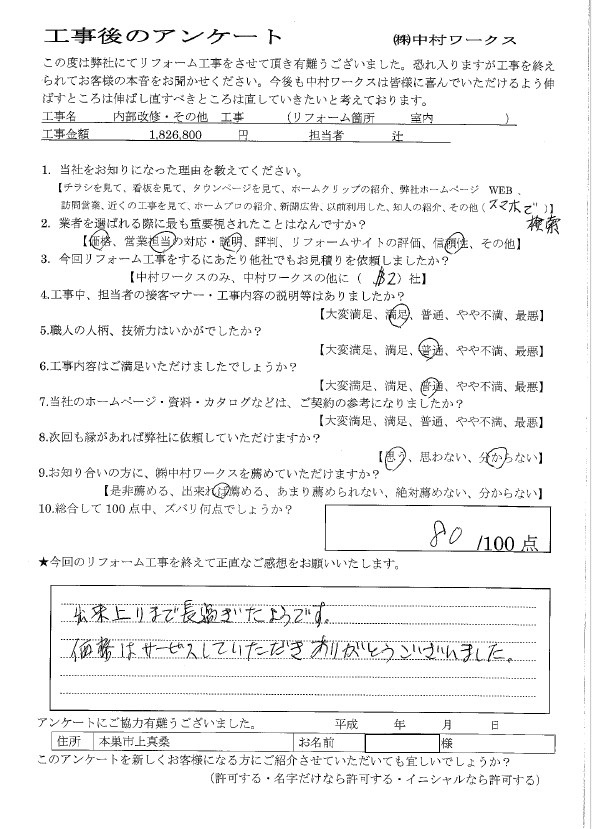 工事後のアンケート ㈱中村ワークス
この度は弊社にてリフォーム工事をさせて頂き有難うございました。恐れ入りますが工事を終え
られてお客様の本音をお聞かせください。今後も中村ワークスは皆様に喜んでいただけるよう伸
ばすところは伸ばし直すべきところは直していきたいと考えております。
工事名 内部改修・その他 工事 (リフォーム箇所 室内 )
工事金額 1,826,800 円 担当者 辻
1. 当社をお知りになった理由を教えてください。
【チラシを見て、看板を見て、タウンページを見て、ホームクリップの紹介、弊社ホームページ WEB 、
訪問営業、近くの工事を見て、ホームプロの紹介、新聞広告、以前利用した、知人の紹介、その他(スマホで)】
検索
2. 業者を選ばれる際に最も重要視されたことはなんですか?
【価格、営業担当の対応・説明、評判、リフォームサイトの評価、信頼性、その他】
3. 今回リフォーム工事をするにあたり他社でもお見積りを依頼しましたか?
【中村ワークスのみ、中村ワークスの他に ( 2 ) 社】
4.工事中、担当者の接客マナー・工事内容の説明等はありましたか?
【大変満足、満足、普通、やや不満、最悪】
5.職人の人柄、技術力はいかがでしたか?
【大変満足、満足、普通、やや不満、最悪】
6.工事内容はご満足いただけましたでしょうか?
【大変満足、満足、普通、やや不満、最悪】
7.当社のホームページ・資料・カタログなどは、ご契約の参考になりましたか?
【大変満足、満足、普通、やや不満、最悪】
8.次回も縁があれば弊社に依頼していただけますか?
【思う、思わない、分からない】
9.お知り合いの方に、㈱中村ワークスを薦めていただけますか?
【是非薦める、出来れば薦める、あまり薦められない、絶対薦めない、分からない】
10.総合して 100 点中、ズバリ何点でしょうか?
80 /100 点
★今回のリフォーム工事を終えて正直なご感想をお願いいたします。
出来上りまで長過ぎたようです。
価格はサービスしていただきありがとうございました。
アンケートにご協力有難うございました。 平成 年 月 日
住所 本巣市上真桑 お名前 様
このアンケートを新しくお客様になる方にご紹介させていただいても宜しいでしょうか?
(許可する・名字だけなら許可する・イニシャルなら許可する)